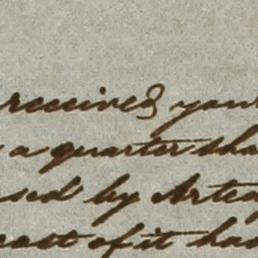 received your
a quarter tha
sed by Artes
cast of it had